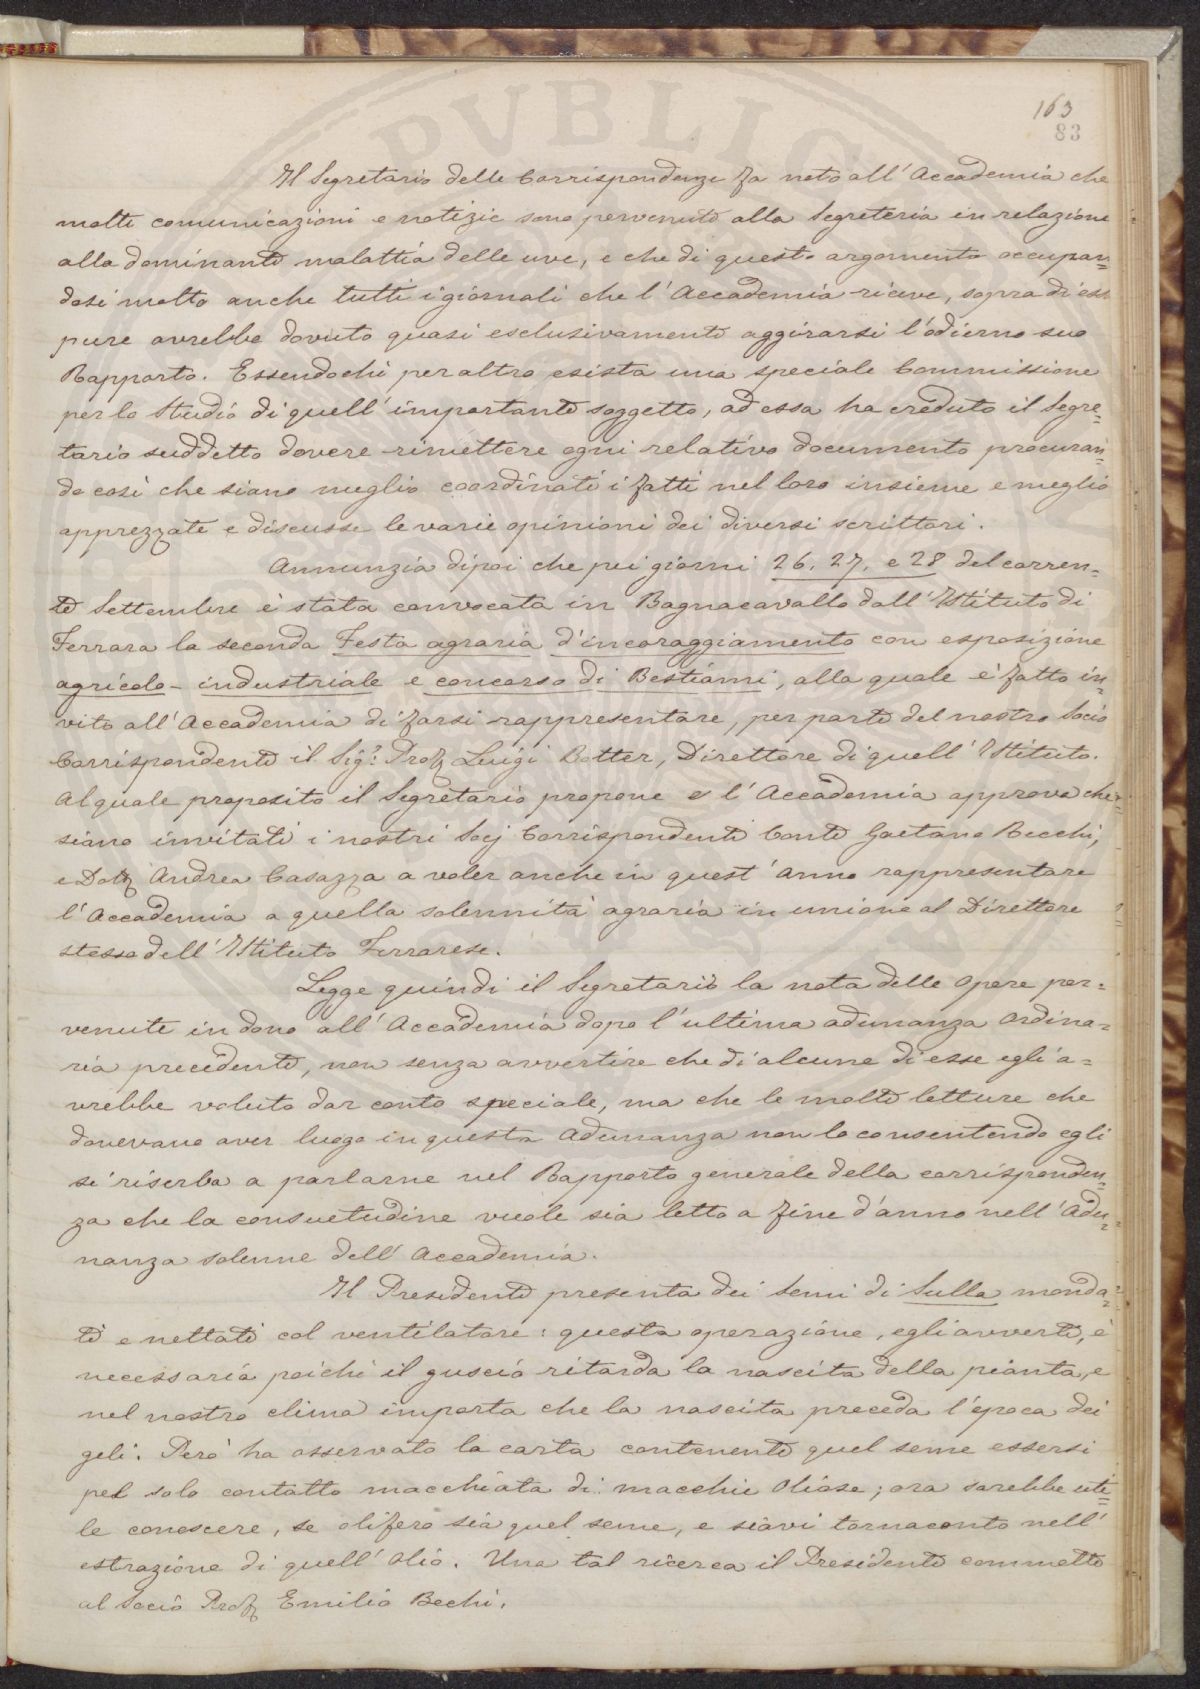 163
83
Il Segretario delle Corrispondenze fa noto all'Accademia che
molte comunicazioni e notizie sono pervenute alla Segreteria in relazione
alla dominante malattia delle uve, e che di questo argomento occupan=
dosi molto anche tutti i giornali che l'Accademia riceve, sopra di essi
pure avrebbe dovuto quasi esclusivamente aggirarsi l'odierno suo
Rapporto. Essendochè per altro esista una speciale Commissione
per lo Studio di quell'importante soggetto, ad essa ha creduto il Segre=
tario suddetto dovere rimettere ogni relativo documento procuran=
do così che siano meglio coordinati i fatti nel loro insieme e meglio
apprezzate e discusse le varie opinioni dei diversi scrittori.
Annunzia dipoi che pei giorni 26, 27, e 28 del corren=
te Settembre è stata convocata in Bagnacavallo dall'Istituto di
Ferrara la seconda Festa agraria d'incoraggiamento con esposizione
agricolo-industriale e concorso di Bestiami, alla quale è fatto in=
vito all'Accademia di farsi rappresentare, per parte del nostro Socio
Corrispondente il Sig.r Prof. Luigi Botter, Direttore di quell'Istituto.
Al quale proposito il Segretario propone e l'Accademia approva che
siano invitati i nostri Socj Corrispondenti Conte Gaetano Recchi,
e Dott. Andrea Casazza a voler anche in quest'anno rappresentare
l'Accademia a quella solennità agraria in unione al Direttore
stesso dell'Istituto Ferrarese.
Legge quindi il Segretario la nota delle Opere per=
venute in dono all'Accademia dopo l'ultima adunanza Ordina=
ria precedente, non senza avvertire che di alcune di esse egli a=
vrebbe voluto dar conto speciale, ma che le molte letture che
dovevano aver luogo in questa Adunanza non lo consentendo egli
si riserba a parlarne nel Rapporto generale della corrisponden=
za che la consuetudine vuole sia letto a fine d'anno nell'Adu=
nanza solenne dell'Accademia.
Il Presidente presenta dei semi di Sulla monda=
ti e nettati col ventilatore: questa operazione, egli avverte, è
necessaria poichè il guscio ritarda la nascita della pianta, e
nel nostro clima importa che la nascita preceda l'epoca dei
geli. Però ha osservato la carta contenente quel seme essersi
pel solo contatto macchiata di macchie Oliose; ora sarebbe uti=
le conoscere, se olifero sia quel seme, e siavi tornaconto nell'
estrazione di quell'Olio. Una tal ricerca il Presidente commette
al Socio Prof. Emilio Bechi.
PVBLIC